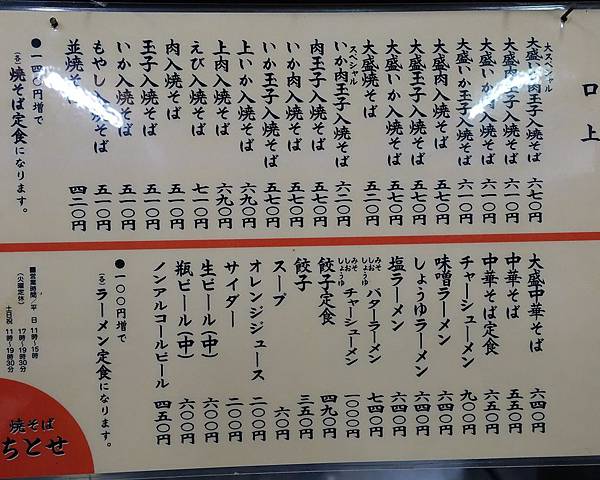 口上
大スペシャル
大盛いか肉玉子入焼そば 六七〇円
大盛肉玉子入焼そば 六一〇円
大盛いか肉入焼そば 六一〇円
大盛いか玉子入焼そば 六一〇円
大盛肉入焼そば 五七〇円
大盛玉子入焼そば 五七〇円
大盛いか入焼そば 五七〇円
大盛焼そば 五二〇円
スペシャル
いか肉玉子入焼そば 六二〇円
肉玉子入焼そば 五七〇円
いか肉入焼そば 五七〇円
いか玉子入焼そば 五七〇円
上いか入焼そば 六九〇円
上肉入焼そば 六九〇円
えび入焼そば 七一〇円
肉入焼そば 五一〇円
玉子入焼そば 五一〇円
いか入焼そば 五一〇円
もやし入焼そば 五一〇円
並焼そば 四二〇円
●一四〇円増で
(各)焼そば定食になります。
大盛中華そば 六四〇円
中華そば 五五〇円
中華そば定食 六五〇円
チャーシューメン 九〇〇円
味噌ラーメン 六四〇円
しょうゆラーメン 六四〇円
塩ラーメン 六四〇円
みそ しお しょうゆ バターラーメン 七四〇円
みそ しお しょうゆ チャーシューメン 一〇〇〇円
餃子定食 四九〇円
餃子 三五〇円
スープ 六〇円
オレンジジュース 二〇〇円
サイダー 二〇〇円
生ビール(中) 六〇〇円
瓶ビール(中) 六〇〇円
ノンアルコールビール 四五〇円
●一〇〇円増で
(各)ラーメン定食になります。
■営業時間/平 日 11時〜15時
17時〜19時30分
(火曜定休) 土日祝 11時〜19時30分
焼そば
ちとせ